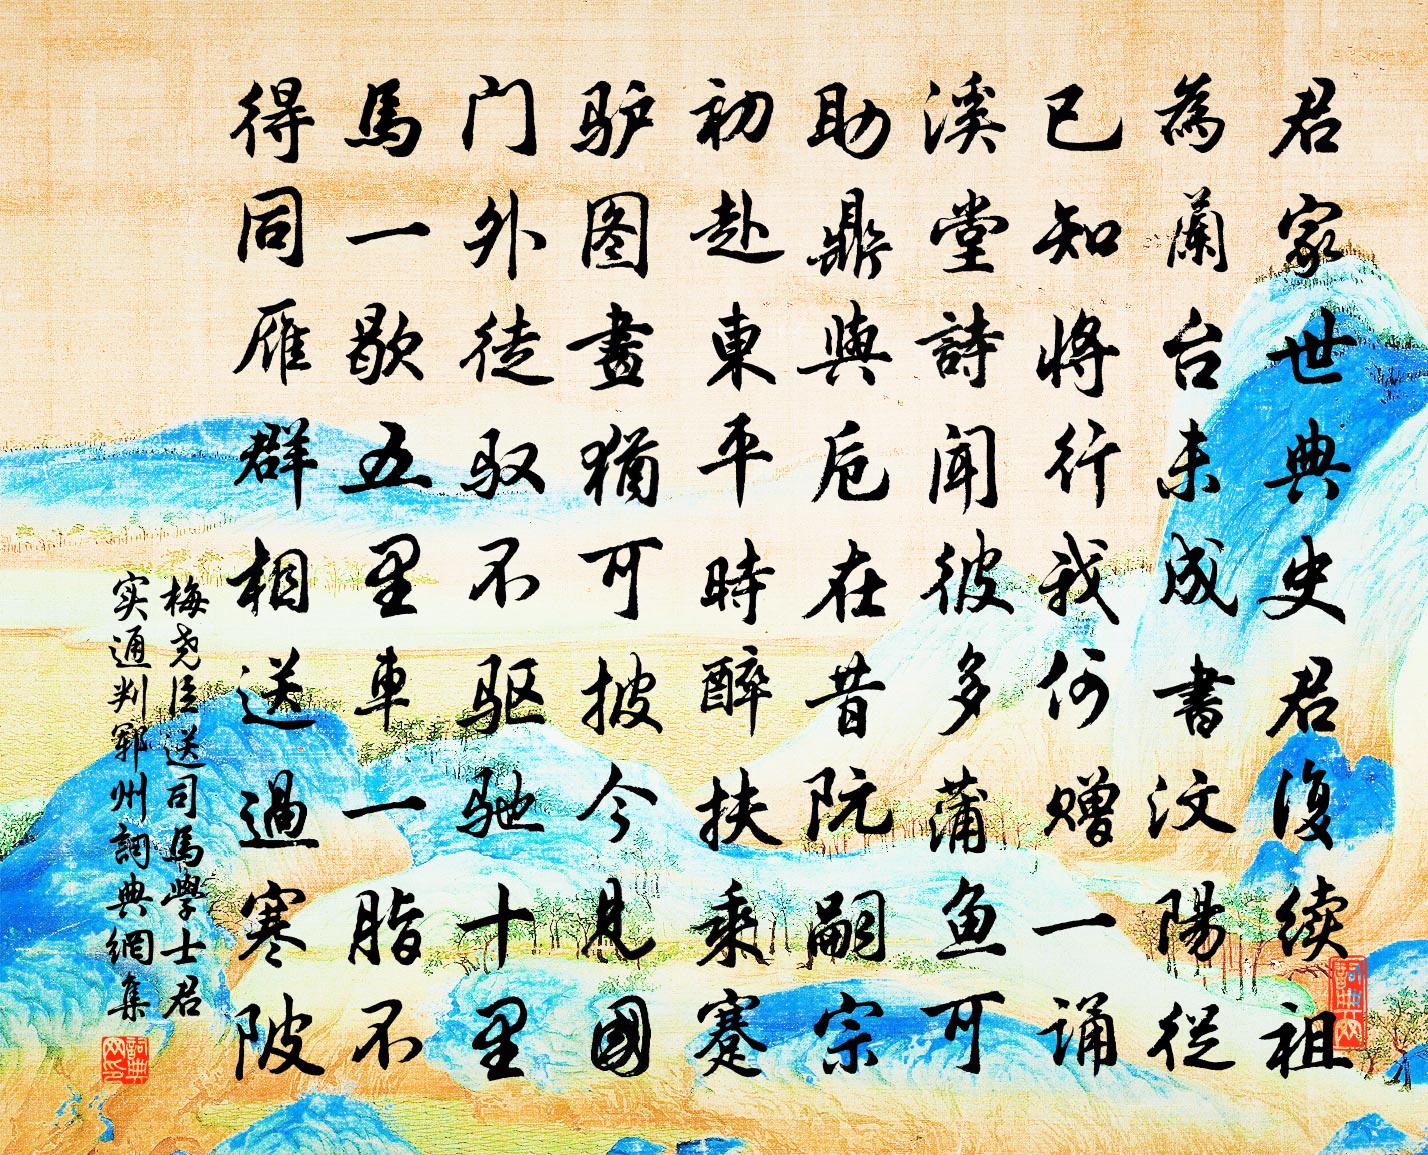 君家世典史君復续祖
為蘭台未成書汶陽從
已知將行我何赠一诵
溪堂詩闻彼多蒲鱼可
助鼎與卮在昔阮嗣宗
初赴東平時醉扶乘蹇
驴图畫猶可披今見國
门外徒驭不驱驰十里
馬一歇五里車一脂不
得同雁群相送過寒陂
梅尧臣送司馬學士君
实通判郓州詞典網集